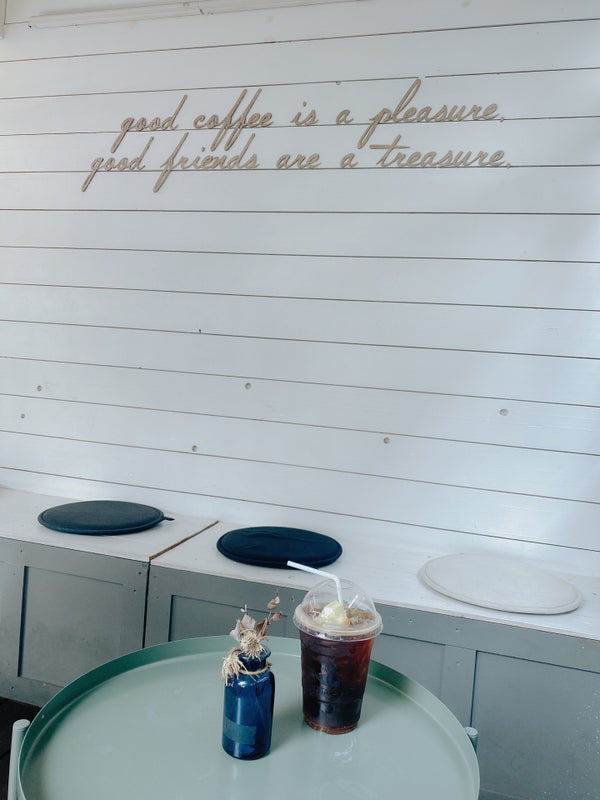 good coffee is a pleasure.
good friends are a treasure.